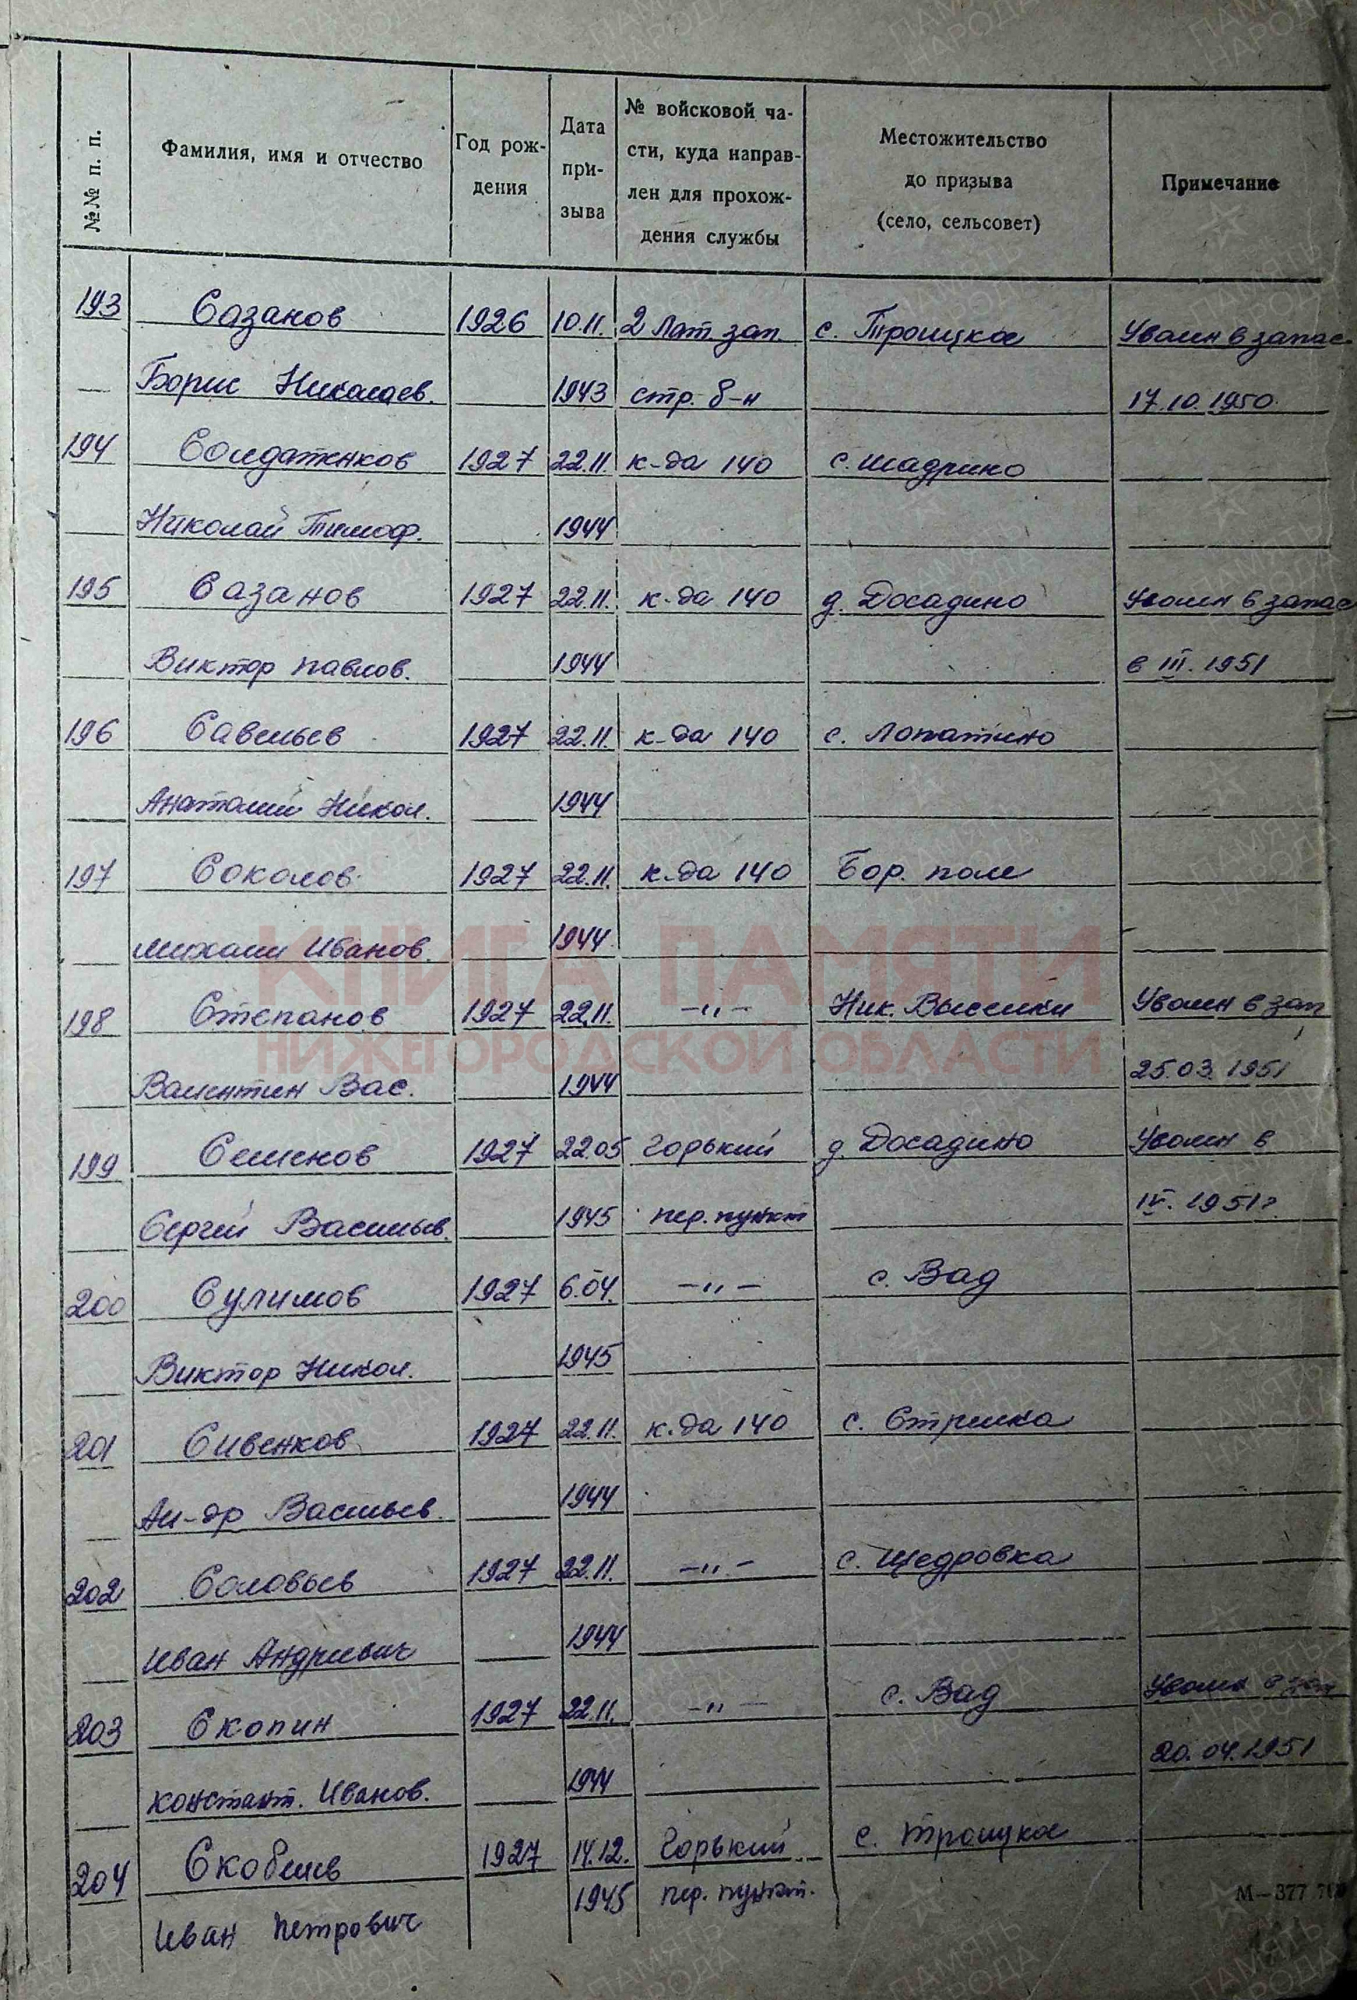 №№ п. п.
Фамилия, имя и отчество
Год рож-
дения
Дата
при-
зыва
№ войсковой ча-
сти, куда направ-
лен для прохож-
дения службы
Местожительство
до призыва
(село, сельсовет)
Примечание
193 Сазанов 1926 10.11. 2 Лат. зап. с. Троицкое Уволен в запас
Борис Николаев. 1943 стр. б-н 17.10.1950.
194 Солдатенков 1927 22.11. к-да 140 с. Шадрино
Николай Тимоф. 1944
195 Сазанов 1927 22.11. к-да 140 д. Досадино Уволен в запас
Виктор Павлов. 1944 в III. 1951
196 Савельев 1927 22.11. к-да 140 с. Лопатино
Анатолий Никол. 1944
197 Соколов 1927 22.11. к-да 140 Бор. поле
Михаил Иванов. 1944
КНИГА ПАМЯТИ
198 Степанов 1927 22.11. -"- Ник. Выселки Уволен в зап
НИЖЕГОРОДСКОЙ ОБЛАСТИ
Валентин Вас. 1944 25.03.1951
199 Семенов 1927 22.05 Горький д. Досадино Уволен в
Сергей Васильев. 1945 пер. пункт IV. 1951г
200 Сулимов 1927 6.04. -"- с. Вад
Виктор Никол. 1945
201 Сивенков 1927 22.11. к-да 140 с. Стрелка
Ал-др Васильев. 1944
202 Соловьев 1927 22.11. -"- с. Щедровка
Иван Андреевич 1944
203 Скопин 1927 22.11. -"- с. Вад Уволен в зап
Констант. Иванов. 1944 20.04.1951
204 Скобелев 1927 14.12. Горький с. Троицкое
Иван Петрович 1945 пер. пункт.
М—377 700
ПАМЯТЬ
НАРОДА